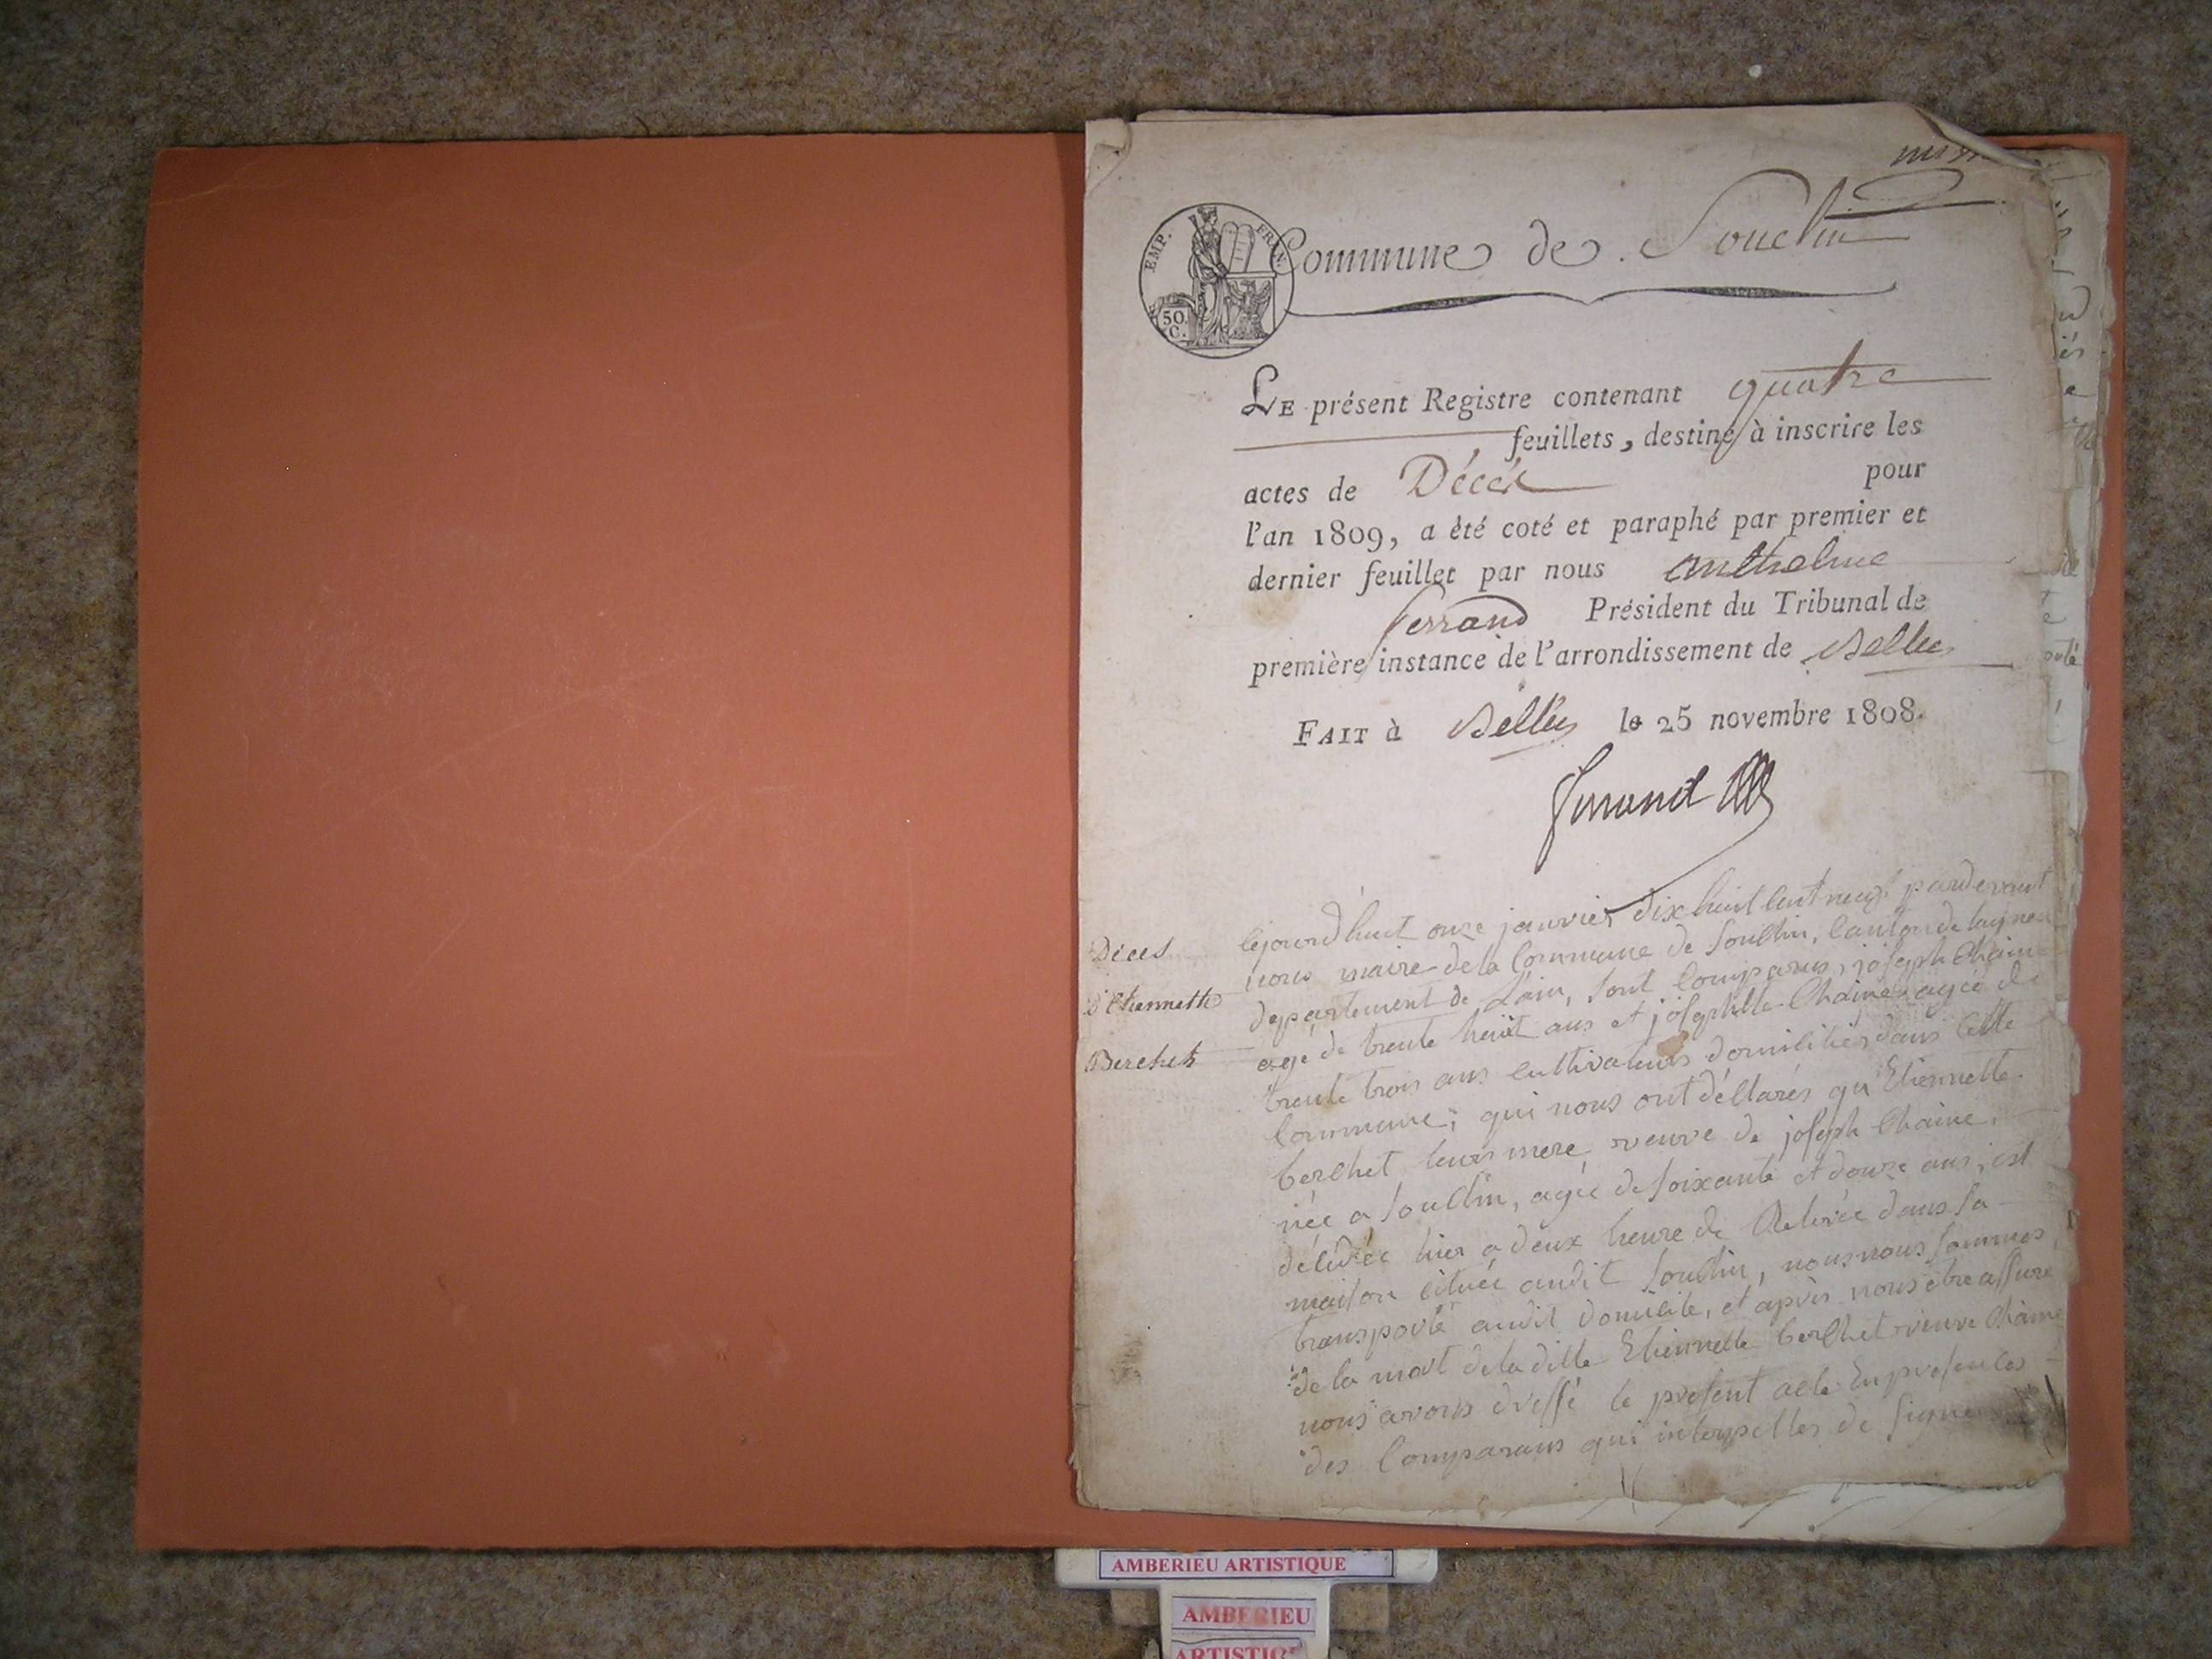 EMP. FRAN.
50
C.
Commune de Souclin
LE présent Registre contenant quatre
feuillets, destiné à inscrire les
actes de Décés pour
l'an 1809, a été coté et paraphé par premier et
dernier feuillet par nous anthelme
ferrand Président du Tribunal de
première instance de l'arrondissement de Belley
FAIT à Belley le 25 novembre 1808.
ferrand
Déces
D'Etiennette
Berchet
Cejourd'huit onze janvier dix huit cent neuf pardevant
nous maire de la Commune de Souclin, Canton de lagneu
departement de L'ain, sont Comparus, joseph Chaine
agé de trente huit ans et josephtte Chaine agée de
trente trois ans cultivateurs domiciliés dans cette
Commune; qui nous ont déclarés qu'Etiennette
berchet leurs mere veuve de joseph Chaine,
née a Souclin, agée de soixante et douze ans, est
décédée hier a deux heure de Relevée dans sa
maison située audit Souclin, nous nous sommes
transporté audit domicile, et après nous être assuré
de la mort de la ditte Etiennette berchet veuve Chaine
nous avons dressé le présent acte En présences
des Comparans qui interpelles de signer
AMBERIEU ARTISTIQUE
AMBERIEU
ARTISTIQUE